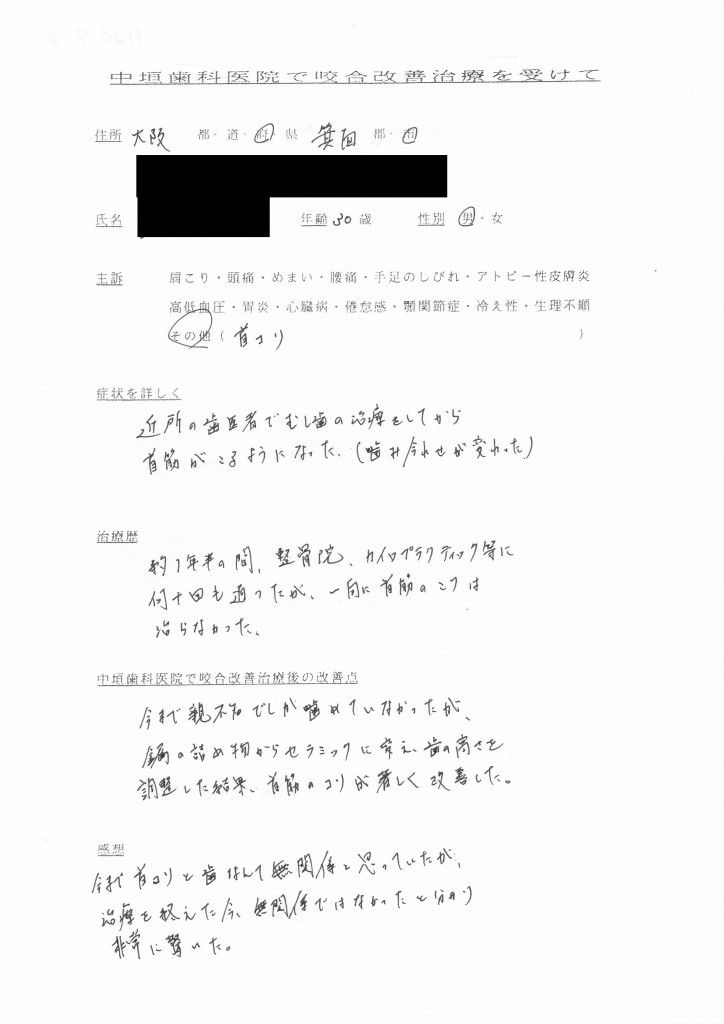 中垣歯科医院で咬合改善治療を受けて
住所 大阪 都・道・府・県 箕面 郡・市
氏名 年齢 30 歳 性別 男・女
主訴 肩こり・頭痛・めまい・腰痛・手足のしびれ・アトピー性皮膚炎
高低血圧・胃炎・心臓病・倦怠感・顎関節症・冷え性・生理不順
その他（ 首コリ ）
症状を詳しく
近所の歯医者でむし歯の治療をしてから
首筋がこるようになった、(噛み合わせが変わった)
治療歴
約1年半の間、整骨院、カイロプラクティック等に
何十回も通ったが、一向に首筋のこりは
治らなかった、
中垣歯科医院で咬合改善治療後の改善点
今まで親不知でしか噛めていなかったが、
銀の詰め物からセラミックに変え、歯の高さを
調整した結果、首筋のコリが著しく改善した。
感想
今まで首コリと歯なんて無関係と思っていたが、
治療を終えた今、無関係ではなかったと分かり
非常に驚いた。